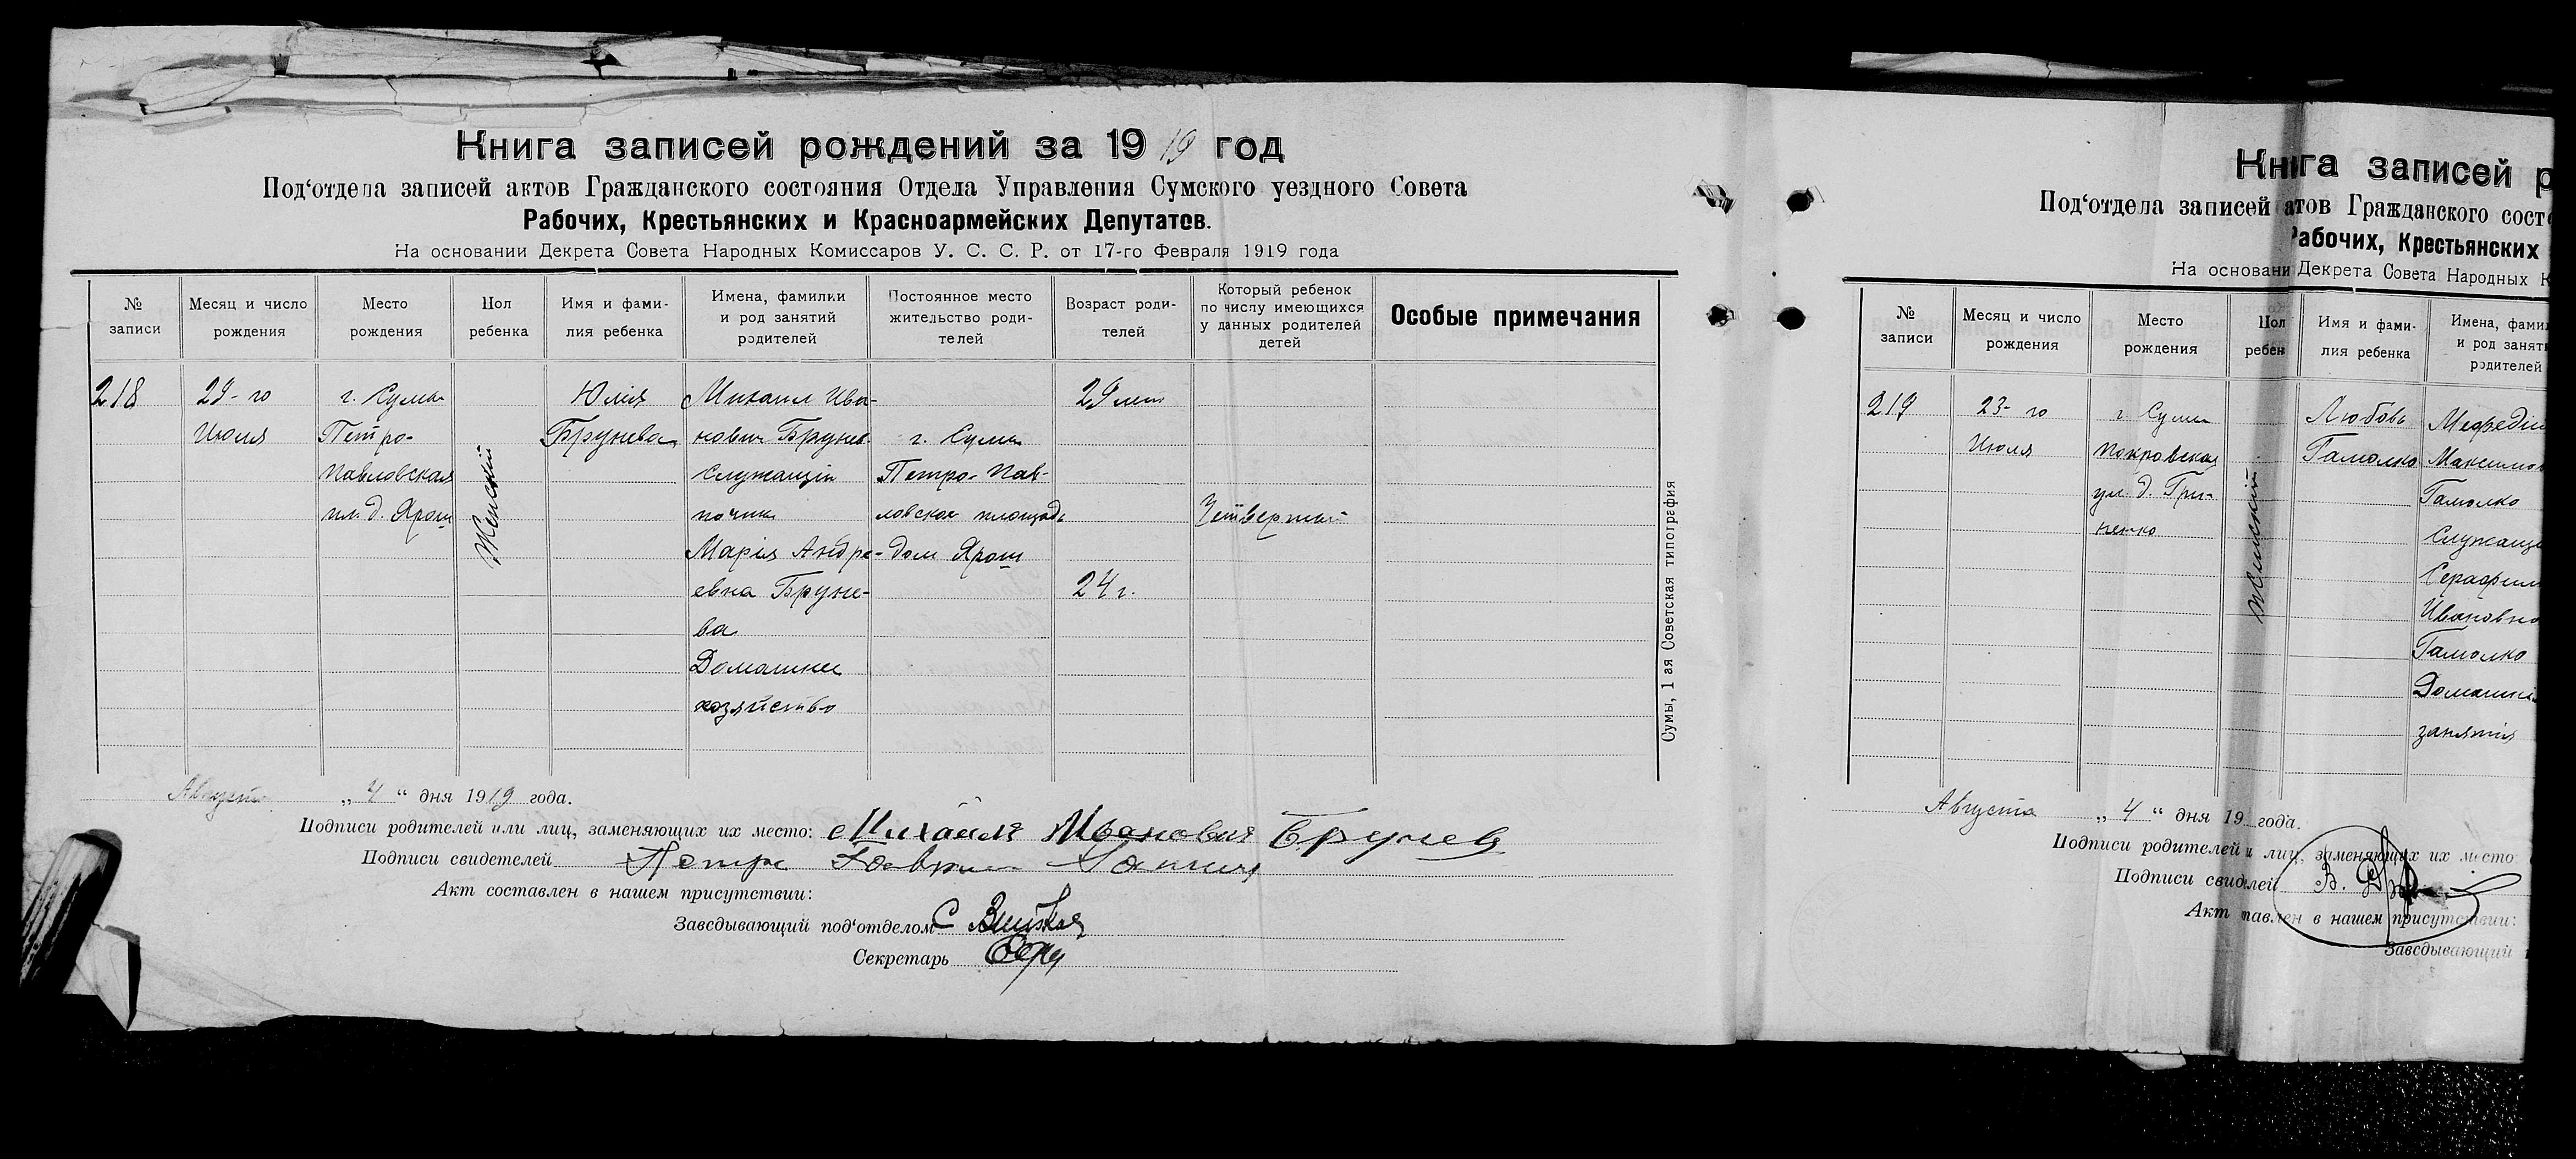 Книга записей рождений за 1919 год
Под'отдела записей актов Гражданского состояния Отдела Управления Сумского уездного Совета
Рабочих, Крестьянских и Красноармейских Депутатов.
На основании Декрета Совета Народных Комиссаров У. С. С. Р. от 17-го Февраля 1919 года
№ записи
Месяц и число рождения
Место рождения
Пол ребенка
Имя и фами-
лия ребенка
Имена, фамилии
и род занятий
родителей
Постоянное место
жительство роди-
телей
Возраст роди-
телей
Который ребенок
по числу имеющихся
у данных родителей
детей
Особые примечания
218
29-го
Июля
г. Сумы
Петро-
Павловская
пл. д. Ярош
Женский
Юлия
Брунева
Михаил Ива-
нович Брунев
Служащий
почты
Мария Андре-
евна Бруне-
ва
Домашнее
хозяйство
г. Сумы
Петро-Пав-
ловская площадь
дом Ярош
29 лет
24 г.
Четвертый
Сумы, 1 ая Советская типография
Августа „4“ дня 1919 года.
Подписи родителей или лиц, заменяющих их место: Михаил Иванович Брунев
Подписи свидетелей Петр
Акт составлен в нашем присутствии:
Заведывающий под'отделом С
Секретарь
Книга записей р
Под'отдела записей атов Гражданского сост
Рабочих, Крестьянских
На основани Декрета Совета Народных К
№ записи
Месяц и число рождения
Место рождения
Пол ребен
Имя и фами-
лия ребенка
Имена, фами
и род занят
родителей
219
23-го
Июля
г. Сумы
Покровская
ул. д. Гри-
ненко
Женский
Любовь
Гамолко
Мефодий
Максимов
Гамолко
Служащи
Серафим
Ивановна
Гамолко
Домашни
занятия
Августа „4“ дня 19 года.
Подписи родителей и лиц, заменяющих их место:
Подписи свидлей В.
Акт тавлен в нашем присутствии:
Заведывающий